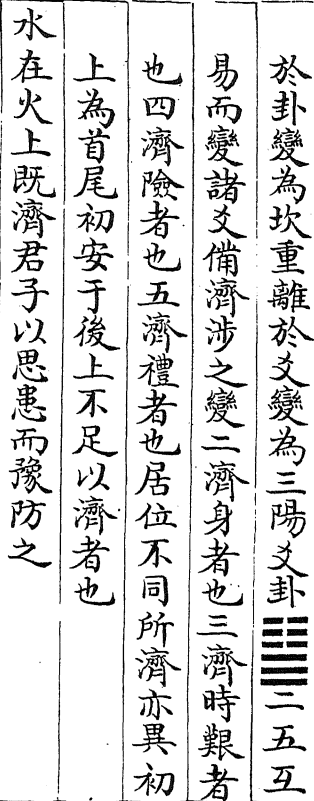 於卦變為坎重離於爻變為三陽爻卦䷊二五互
易而變諸爻備濟涉之變二濟身者也三濟時艱者
也四濟險者也五濟禮者也居位不同所濟亦異初
上為首尾初安于後上不足以濟者也
水在火上既濟君子以思患而豫防之